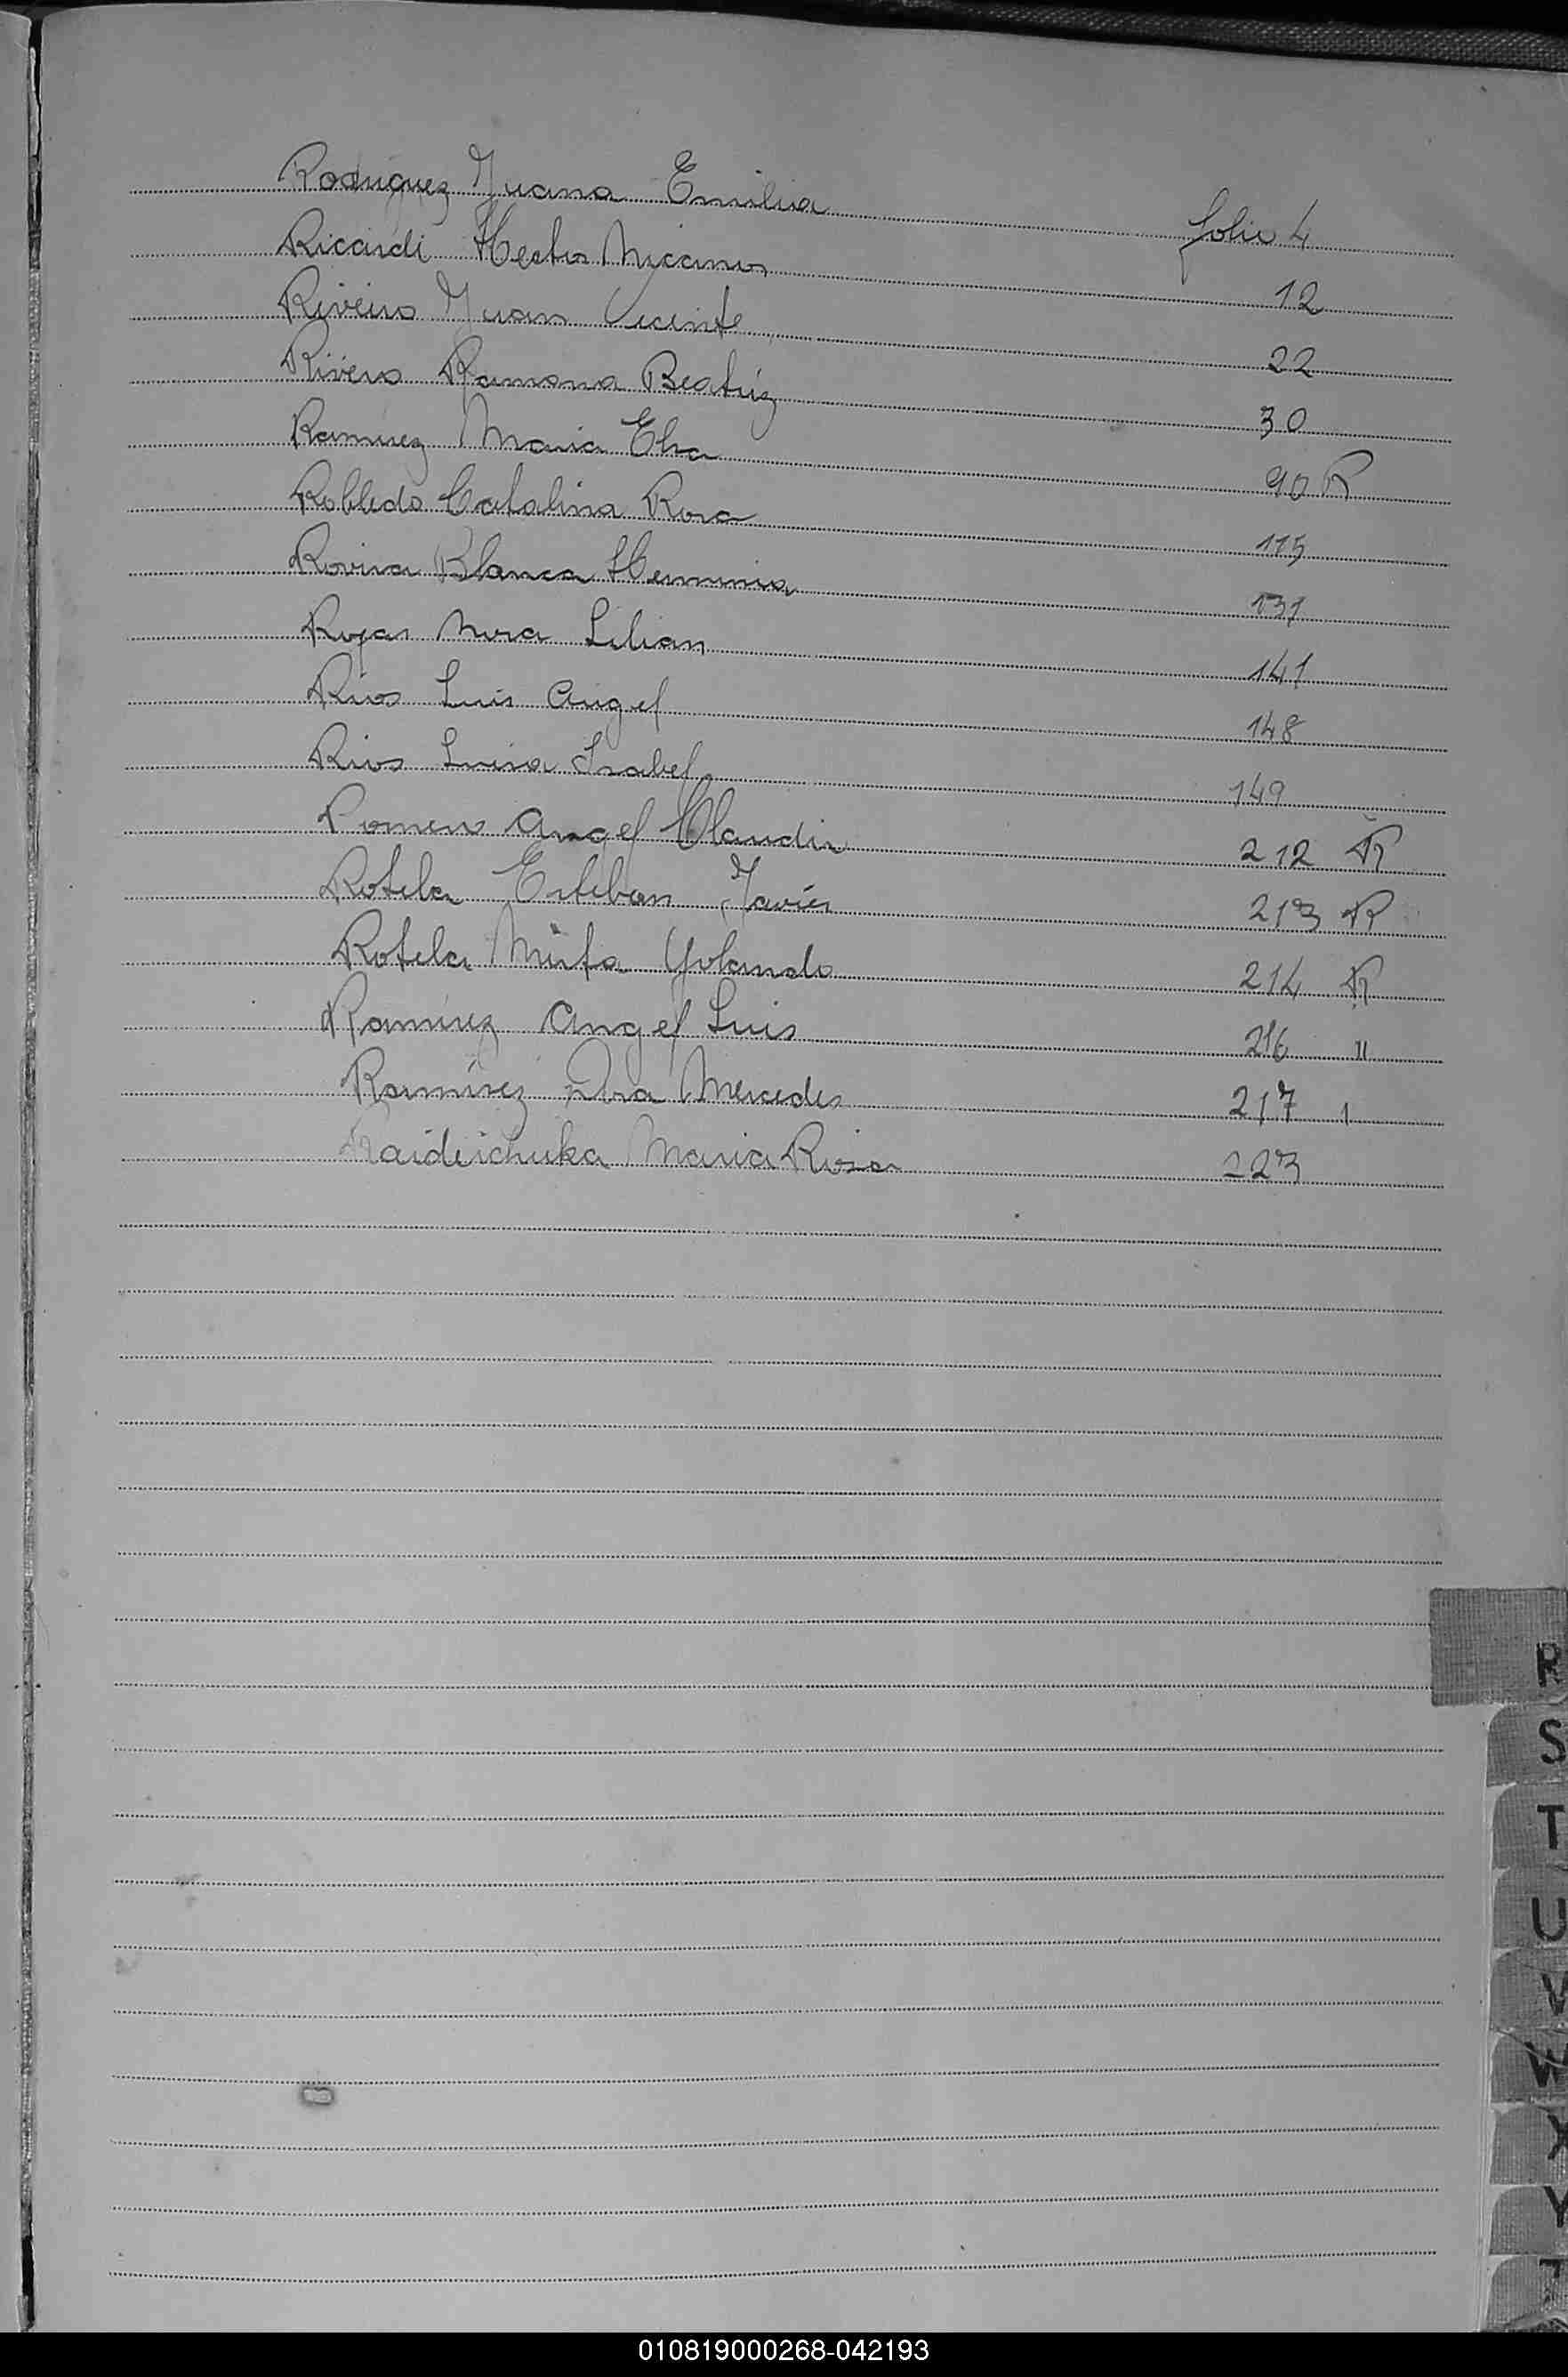 Rodriguez Juana Emilia folio 4
Ricardi Hector Nicanor 12
Riveiro Juan Vicente 22
Rivero Ramona Beatriz 30
Ramirez Maria Elsa 90 R
Robledo Catalina Rosa 115
Rovira Blanca Herminia 131
Rojas Nora Lilian 141
Rios Luis Angel 148
Rios Luisa Isabel 149
Romero Angel Claudio 212 R
Rotela Esteban Javier 213 R
Rotela Mirta Yolanda 214 R
Ramirez Angel Luis 216 "
Ramírez Mercedes 217
Maria Rosa 223
R
S
T
U
V
W
X
Y
Z
010819000268-042193